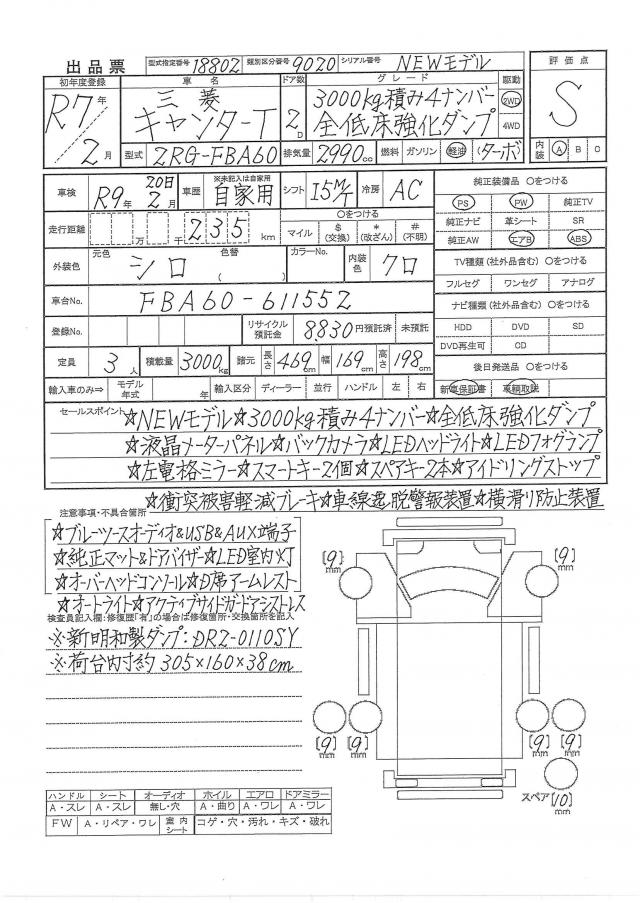 出品票 型式指定番号 18802 類別区分番号 9020 シリアル番号 NEWモデル
初年度登録 車名 ドア数 グレード 駆動 評価点
R7年 三菱 3000kg積み4ナンバー 2WD S
キャンターT 2D 全低床強化ダンプ 4WD
2月 型式 2RG-FBA60 排気量 2990cc 燃料 ガソリン 軽油 (ターボ) 内装 A B C
車検 R9年 20日 2月 車歴 ※未記入は自家用 自家用 シフト I5M/T 冷房 AC 純正装備品 ○をつける
PS PW 純正TV
走行距離 万 千 235 km ○をつける 純正ナビ 革シート SR
マイル $(交換) *(改ざん) #(不明) 純正AW エアB ABS
外装色 元色 シロ 色替 ( ) カラーNo. 内装色 クロ TV種類 (社外品含む) ○をつける
フルセグ ワンセグ アナログ
車台No. FBA60-611552 ナビ種類 (社外品含む) ○をつける
登録No. リサイクル預託金 8,830円預託済 未預託 HDD DVD SD
DVD再生可 CD
定員 3人 積載量 3000kg 諸元 長さ 469cm 幅 169cm 高さ 198cm 後日発送品 ○をつける
輸入車のみ⇒ モデル年式 年 輸入区分 ディーラー 並行 ハンドル 左 右 新車保証書 車輌取説
セールスポイント ☆NEWモデル☆3000kg積み4ナンバー☆全低床強化ダンプ
☆液晶メーターパネル☆バックカメラ☆LEDヘッドライト☆LEDフォグランプ
☆左電格ミラー☆スマートキー2個☆スペアキー2本☆アイドリングストップ
☆衝突被害軽減ブレーキ☆車線逸脱警報装置☆横滑り防止装置
注意事項・不具合箇所
☆ブルーツースオーディオ&USB&AUX端子
☆純正マット&ドアバイザー☆LED室内灯
☆オーバーヘッドコンソール☆D席アームレスト
☆オートライト☆アクティブサイドガードアシストレス
検査員記入欄:修復歴「有」の場合は修復箇所・交換箇所を記入
※新明和製ダンプ:DR2-0110SY
※荷台内寸約305×160×38cm
[9]mm [9]mm
[9]mm [9]mm [9]mm [9]mm
スペア[10]mm
ハンドル シート オーディオ ホイル エアロ ドアミラー
A・スレ A・スレ 無し・穴 A・曲り A・ワレ A・ワレ
FW A・リペア・ワレ 室内シート コゲ・穴・汚れ・キズ・破れ